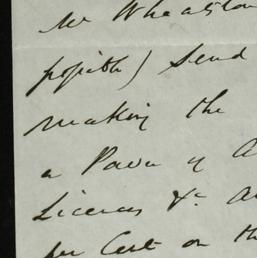 Mr Wheatston
possible) send
making the
a Power of A
Licences &c a
per Cent on th